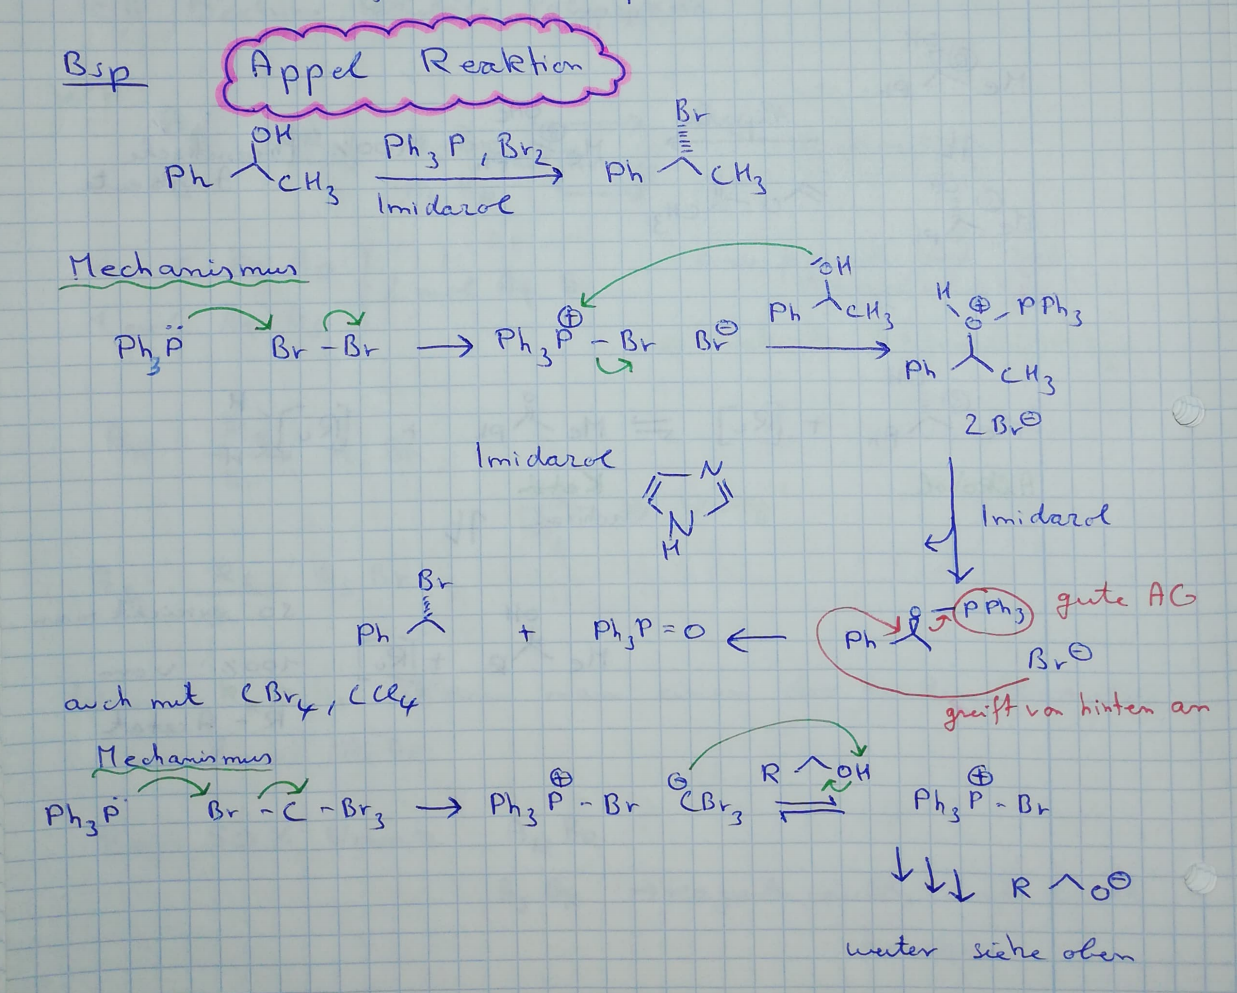 Bsp Appel Reaktion
OH
Ph CH3
Ph3P, Br2
Imidazol
Br
Ph CH3
Mechanismus
Ph3P Br - Br → Ph3P⊕ - Br Br⊖
OH
Ph CH3
H O⊕ - PPh3
Ph CH3
2 Br⊖
Imidazol
N
N
H
Imidazol
O - PPh3 gute AG
Ph
Br⊖
greift von hinten an
Br
Ph + Ph3P = O ←
auch mit CBr4, CCl4
Mechanismus
Ph3P Br - C - Br3 → Ph3P⊕ - Br ⊖CBr3 R OH ⇌ Ph3P⊕ - Br
↓↓↓ R O⊖
weiter siehe oben